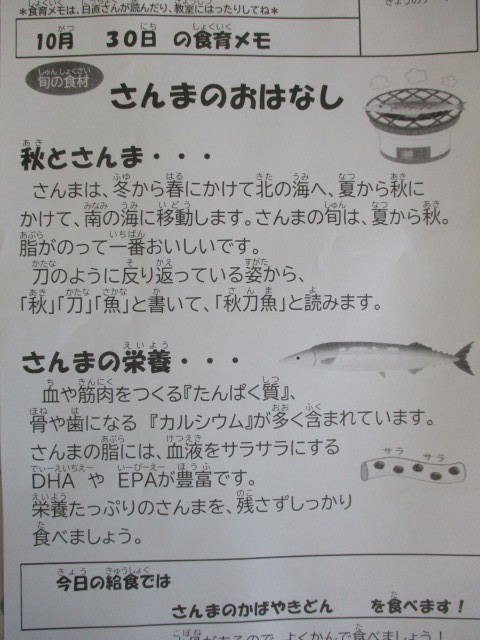 ＊食育メモは、日直さんが読んだり、教室にはったりしてね＊
10月　３０日　の食育メモ
旬の食材
さんまのおはなし
秋とさんま・・・
さんまは、冬から春にかけて北の海へ、夏から秋に
かけて、南の海に移動します。さんまの旬は、夏から秋。
脂がのって一番おいしいです。
刀のように反り返っている姿から、
「秋」「刀」「魚」と書いて、「秋刀魚」と読みます。
さんまの栄養・・・
血や筋肉をつくる『たんぱく質』、
骨や歯になる『カルシウム』が多く含まれています。
さんまの脂には、血液をサラサラにする
DHA や EPAが豊富です。
サラ サラ
栄養たっぷりのさんまを、残さずしっかり
食べましょう。
今日の給食では
さんまのかばやきどん　を食べます！